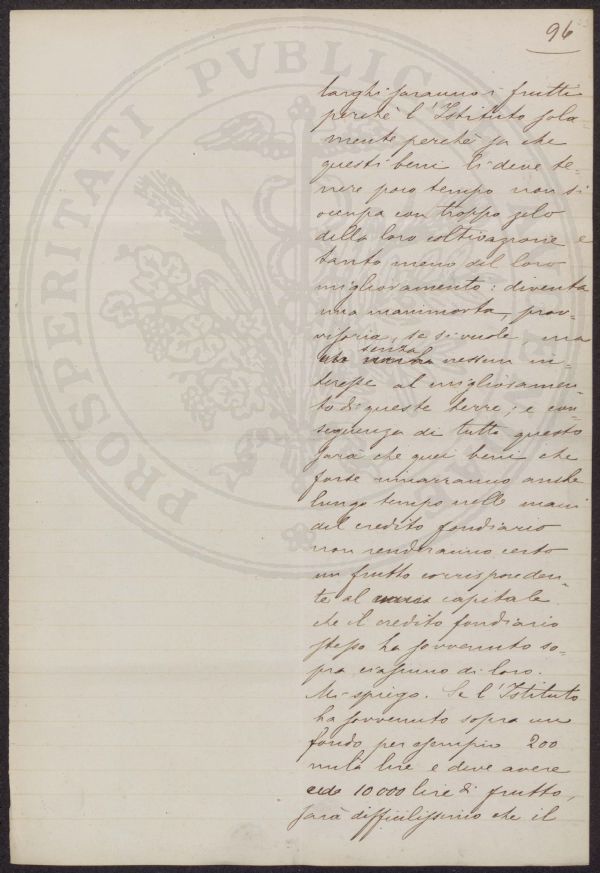 96
larghi saranno i frutti
perchè l'Istituto sola-
mente perchè sa che
questi beni li deve te-
nere poco tempo non si
occupa con troppo zelo
della loro coltivazione e
tanto meno del loro
miglioramento: diventa
una manimorta, prov-
visoria, se si vuole, ma
senza nessun in-
teresse al miglioramen-
to di queste terre; e con-
seguenza di tutto questo
sarà che quei beni che
forse rimarranno anche
lungo tempo nelle mani
del credito fondiario
non renderanno certo
un frutto corrisponden-
te al capitale
che il credito fondiario
stesso ha sovvenuto so-
pra ciascuno di loro.
Mi spiego. Se l'Istituto
ha sovvenuto sopra un
fondo per esempio 200
mila lire e deve avere
10 000 lire di frutto,
sarà difficilissimo che il
PROSPERITATI PVBLICAE